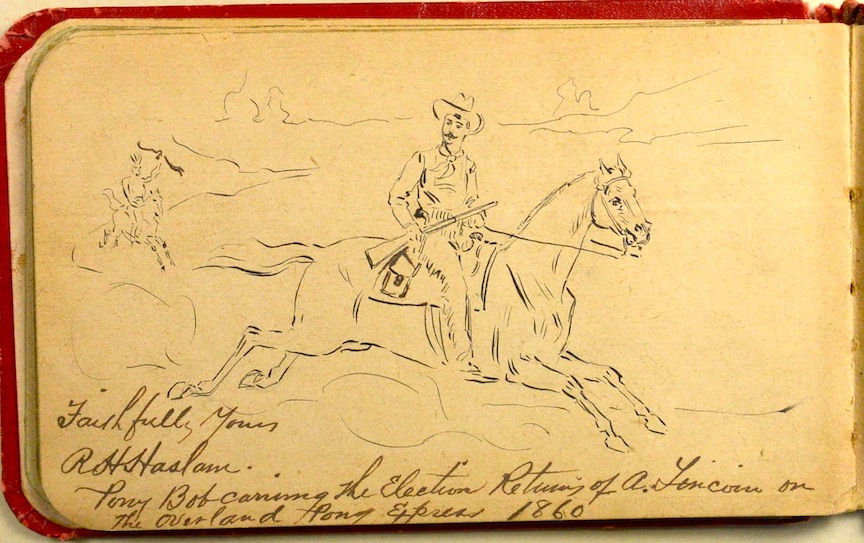 Faithfully Yours
R H Haslam.
Pony Bob carring the Election Returns of A. Lincoln on
the Overland Pony Express 1860